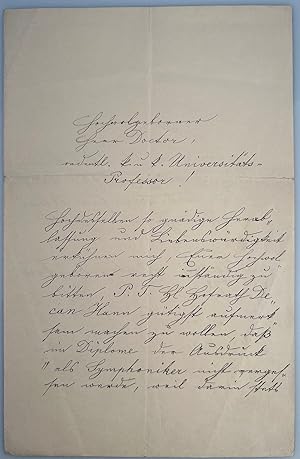 Hochwolgeborner
Herr Doctor,
ordentl. k. u. k. Universitäts-
Professor!
Hochdesselben so gnädige Herab-
lassung und Liebenswürdigkeit
erkühnen mich, Euer Hochwol
geboren recht inständig zu
bitten, P. T. H. Hofrath De-
can Hann gütigst aufmerk
sam machen zu wollen, daß
im Diplome der Ausdruck
"als Symphoniker nicht verges-
sen werde, weil darin stets